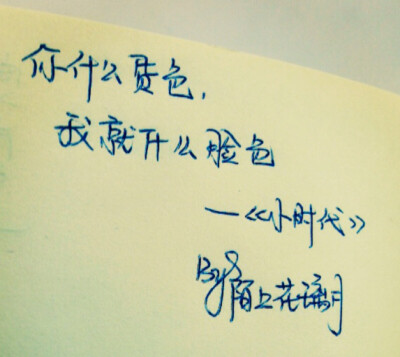 你什么货色,
我就什么脸色
—《小时代》
By 陌上花月